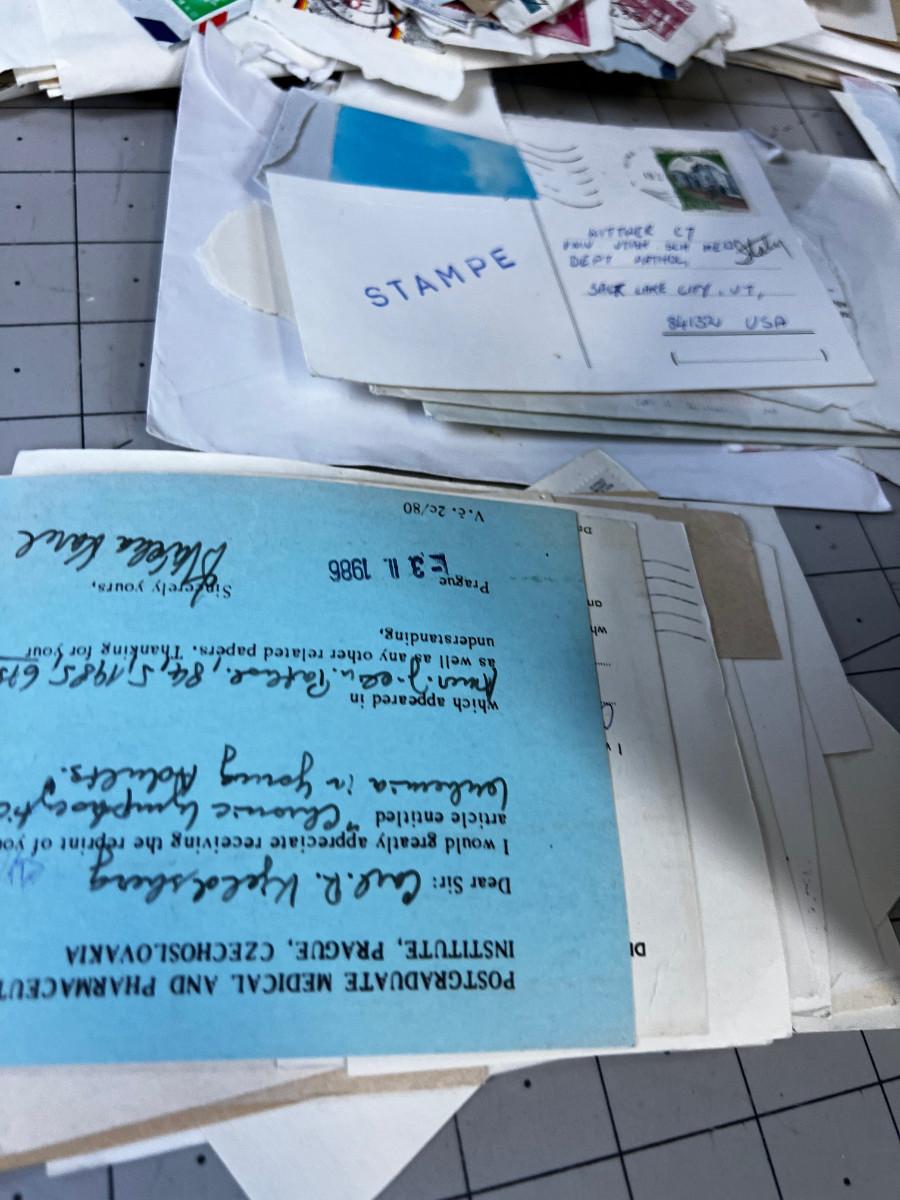 STAMPE
WITTWER CT
UNIV UTAH SCH MED
DEPT PATHOL
SALT LAKE CITY, UT,
84132 USA
POSTGRADUATE MEDICAL AND PHARMACEUT
INSTITUTE, PRAGUE, CZECHOSLOVAKIA
Dear Sir: Carl. R. Kjeldsberg
I would greatly appreciate receiving the reprint of you
article entitled "Chronic Lymphocytic
Leukemia in Young Adults."
which appeared in
Amer. J. clin. Pathol., 84, 5, 1985,
as well as any other related papers. Thanking for your
understanding,
Sincerely yours,
Prague
-3 II. 1986
V. č. 2c/80